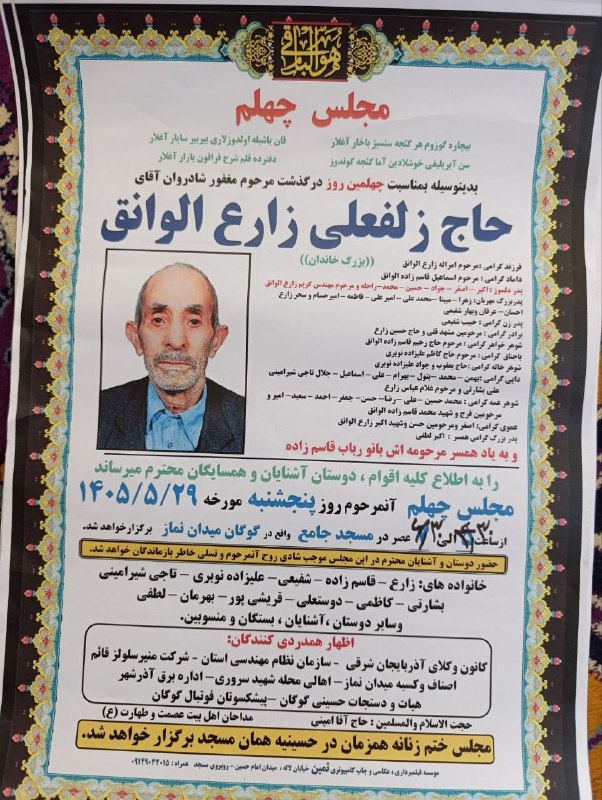 هوالباقی
مجلس چهلم
بیچاره گوزوم هر گئجه سنسیز باخار آغلار
قان یاشیله اولدوزلاری بیربیر سایار آغلار
سن آیریلیغی خوشلادین آما گئجه گوندوز
دفترده قلم شرح فراقون یازار آغلار
بدینوسیله بمناسبت چهلمین روز درگذشت مرحوم مغفور شادروان آقای
حاج زلفعلی زارع الوانق
((بزرگ خاندان))
فرزند گرامی :مرحوم امراله زارع الوانق
داماد گرامی : مرحوم اسماعیل قاسم زاده الوانق
پدر دلسوز :اکبر – اصغر – جواد – حسین – محمد–راحله و مرحوم مهندس کریم زارع الوانق
پدربزرگ مهربان: زهرا – مبینا – محمد علی – امیر علی – فاطمه – امیرحسام و سحر زارع
احسان – عرفان وبهار شفیعی
پدر زن گرامی : حبیب شفیعی
برادر گرامی : مرحومین مشهدقلی و حاج حسین زارع
شوهر خواهر گرامی : مرحوم حاج رحیم قاسم زاده الوانق
باجناق گرامی : مرحوم حاج کاظم علیزاده نوبری
شوهر خاله گرامی : حاج یعقوب و جواد علیزاده نوبری
دایی گرامی :بهمن – محمد –بتول – بهرام – علی – اسماعیل – جلال تاجی شیرامینی
علی بشارتی و مرحوم غلام عباس زارع
شوهر عمه گرامی : محمد حسین – علی –رضا – حسن – جعفر – احمد – سعید – امیر و
مرحومین فرج و شهید محمد قاسم زاده الوانق
عموی گرامی: اصغر ومرحومین حسن وشهید اکبر زارع الوانق
پدر بزرگ گرامی همسر : اکبر لطفی
و به یاد همسر مرحومه اش بانو رباب قاسم زاده
را به اطلاع کلیه اقوام ، دوستان آشنایان و همسایگان محترم میرساند
مجلس چهلم آنمرحوم روز پنجشنبه مورخه ۱۴۰۵/۵/۲۹
ازساعت الی عصر در مسجد جامع واقع در گوگان میدان نماز برگزارخواهد شد.
حضور دوستان و آشنایان محترم در این مجلس موجب شادی روح آنمرحوم و تسلی خاطر بازماندگان خواهد شد.
خانواده های: زارع – قاسم زاده – شفیعی– علیزاده نوبری – تاجی شیرامینی
بشارتی – کاظمی – دوستعلی – قریشی پور – بهرمان – لطفی
وسایر دوستان ،آشنایان ، بستگان و منسوبین.
اظهار همدردی کنندگان:
کانون وکلای آذربایجان شرقی – سازمان نظام مهندسی استان – شرکت منیرسلولز قائم
اصناف وکسبه میدان نماز– اهالی محله شهید سروری– اداره برق آذرشهر
هیات و دستجات حسینی گوگان –پیشکسوتان فوتبال گوگان
حجت الاسلام والمسلمین : حاج آقا امینی
مداحان اهل بیت عصمت و طهارت (ع)
مجلس ختم زنانه همزمان در حسینیه همان مسجد برگزار خواهد شد.
موسسه فیلمبرداری ، عکاسی و چاپ کامپیوتری ثمین خیابان لاله ، میدان امام حسین – روبروی مسجد همراه : ۰۹۱۴۹۰۴۲۰۱۵